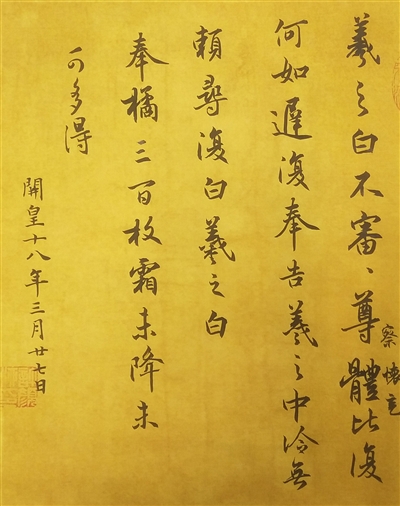 羲之白不審、尊體比復
察懷充
何如遲復奉告羲之中冷無
賴尋復白羲之白
奉橘三百枚霜未降未
可多得
開皇十八年三月廿七日